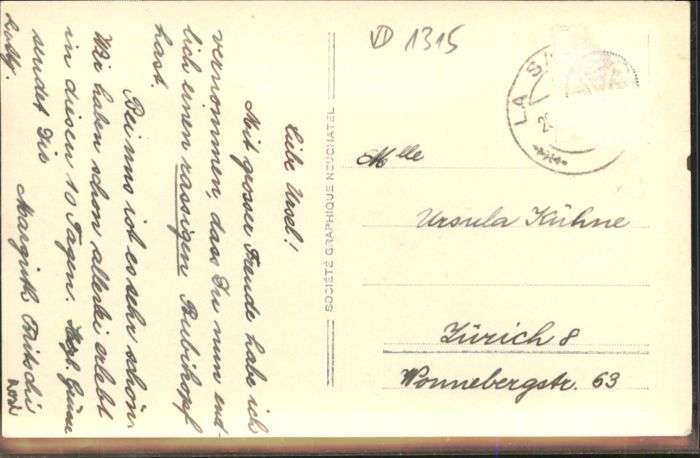 VD 1315
LA SA
Liebe Ursel!
Mit grosser Freude habe ich
vernommen, dass Du nun end-
lich einen rassigen Bubikopf
hast.
Bei uns ist es sehr schön.
Wir haben schon allerlei erlebt
in diesen 10 Tagen. Hzgl. Grüsse
sendet Dir Margrith
SOCIÉTÉ GRAPHIQUE NEUCHATEL
Mlle
Ursula Kühne
Zürich 8
Wonnebergstr. 63